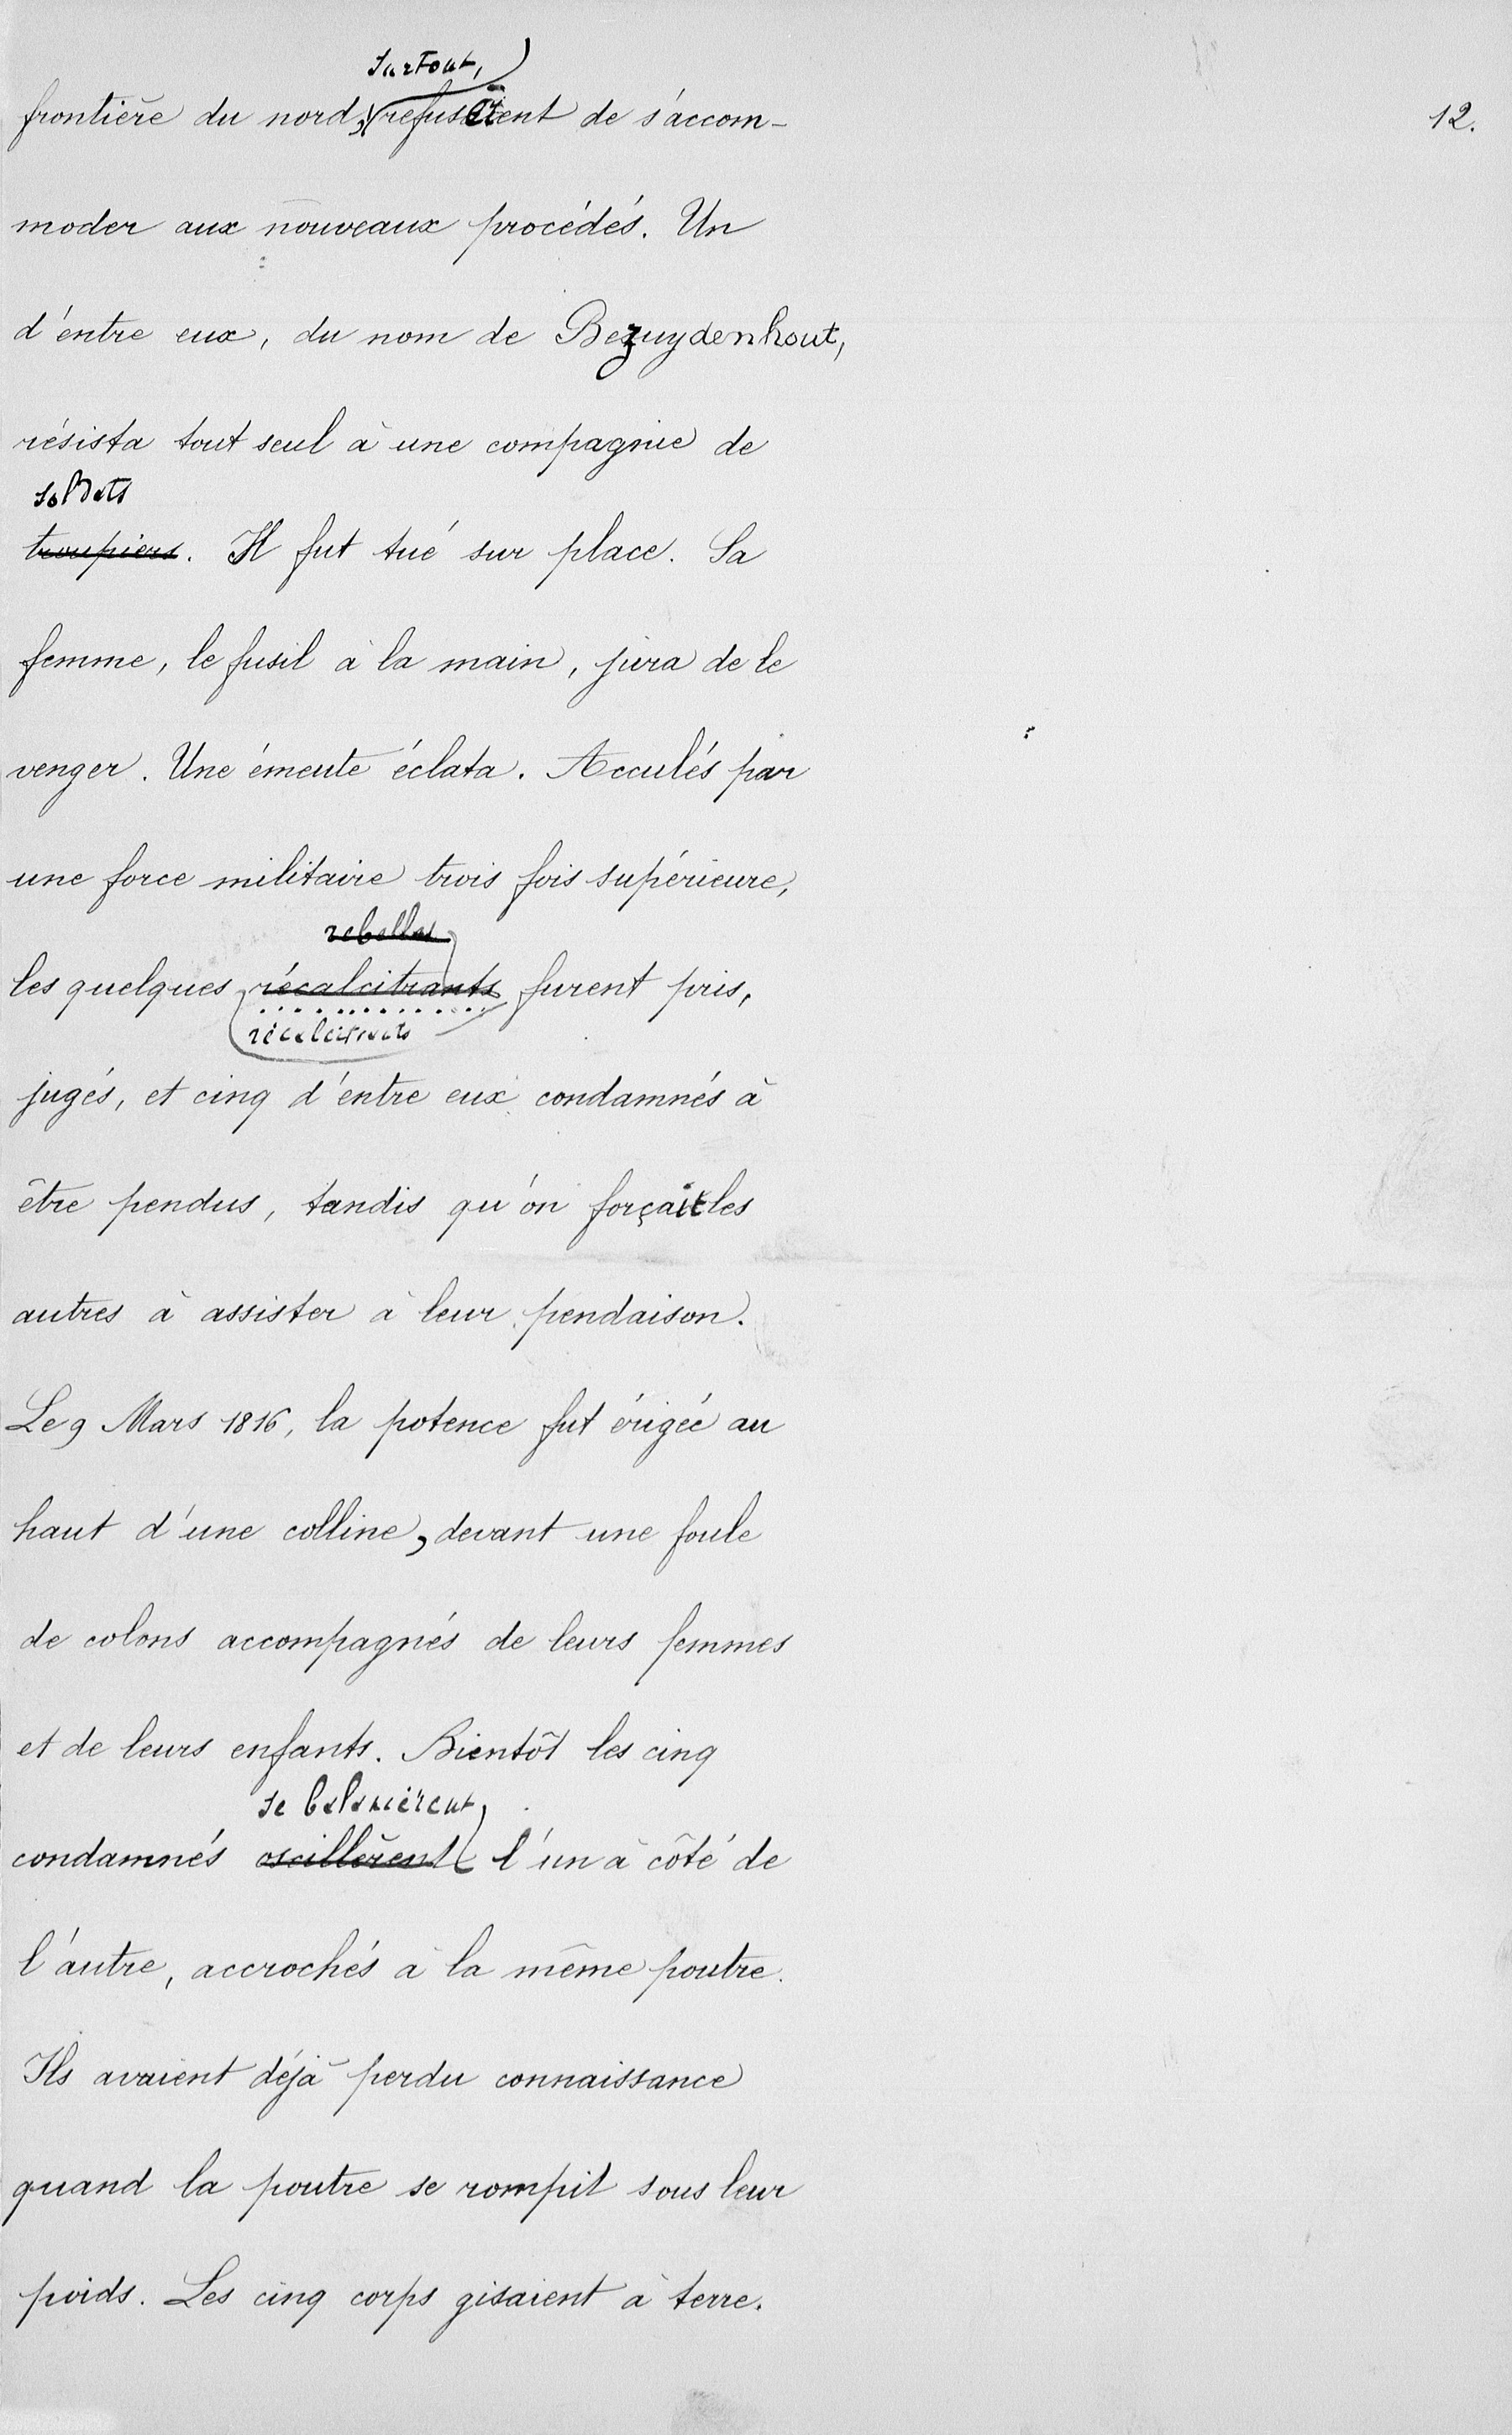 surtout,
frontière du nord, refusèrent de s'accom-
12.
moder aux nouveaux procédés. Un
d'entre eux, du nom de Bezuydenhout,
résista tout seul à une compagnie de
soldats
troupiers. Il fut tué sur place. Sa
femme, le fusil à la main, jura de le
venger. Une émeute éclata. Acculés par
une force militaire trois fois supérieure,
rebelles
les quelques récalcitrants furent pris,
récalcitrants
jugés, et cinq d'entre eux condamnés à
être pendus, tandis qu'on forçait les
autres à assister à leur pendaison.
Le 9 Mars 1816, la potence fut érigée au
haut d'une colline, devant une foule
de colons accompagnés de leurs femmes
et de leurs enfants. Bientôt les cinq
se balancèrent
condamnés oscillèrent l'un à côté de
l'autre, accrochés à la même poutre.
Ils avaient déjà perdu connaissance
quand la poutre se rompit sous leur
poids. Les cinq corps gisaient à terre.